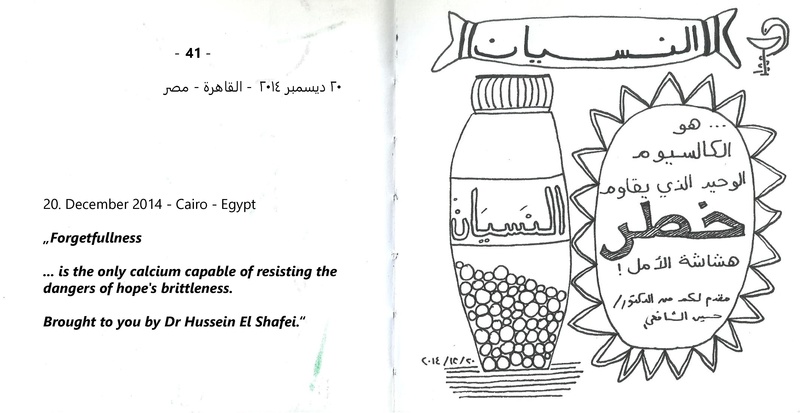 - 41 -
٢٠ ديسمبر ٢٠١٤ - القاهرة - مصر
20. December 2014 - Cairo - Egypt
„Forgetfullness
... is the only calcium capable of resisting the
dangers of hope's brittleness.
Brought to you by Dr Hussein El Shafei.“
النسيان
النَسيَان
... هو
الكالسيوم
الوحيد الذي يقاوم
خطر
هشاشة الأمل!
مقدم لكم من الدكتور/
حسين الشافعي
٢٠١٤/١٢/٢٠